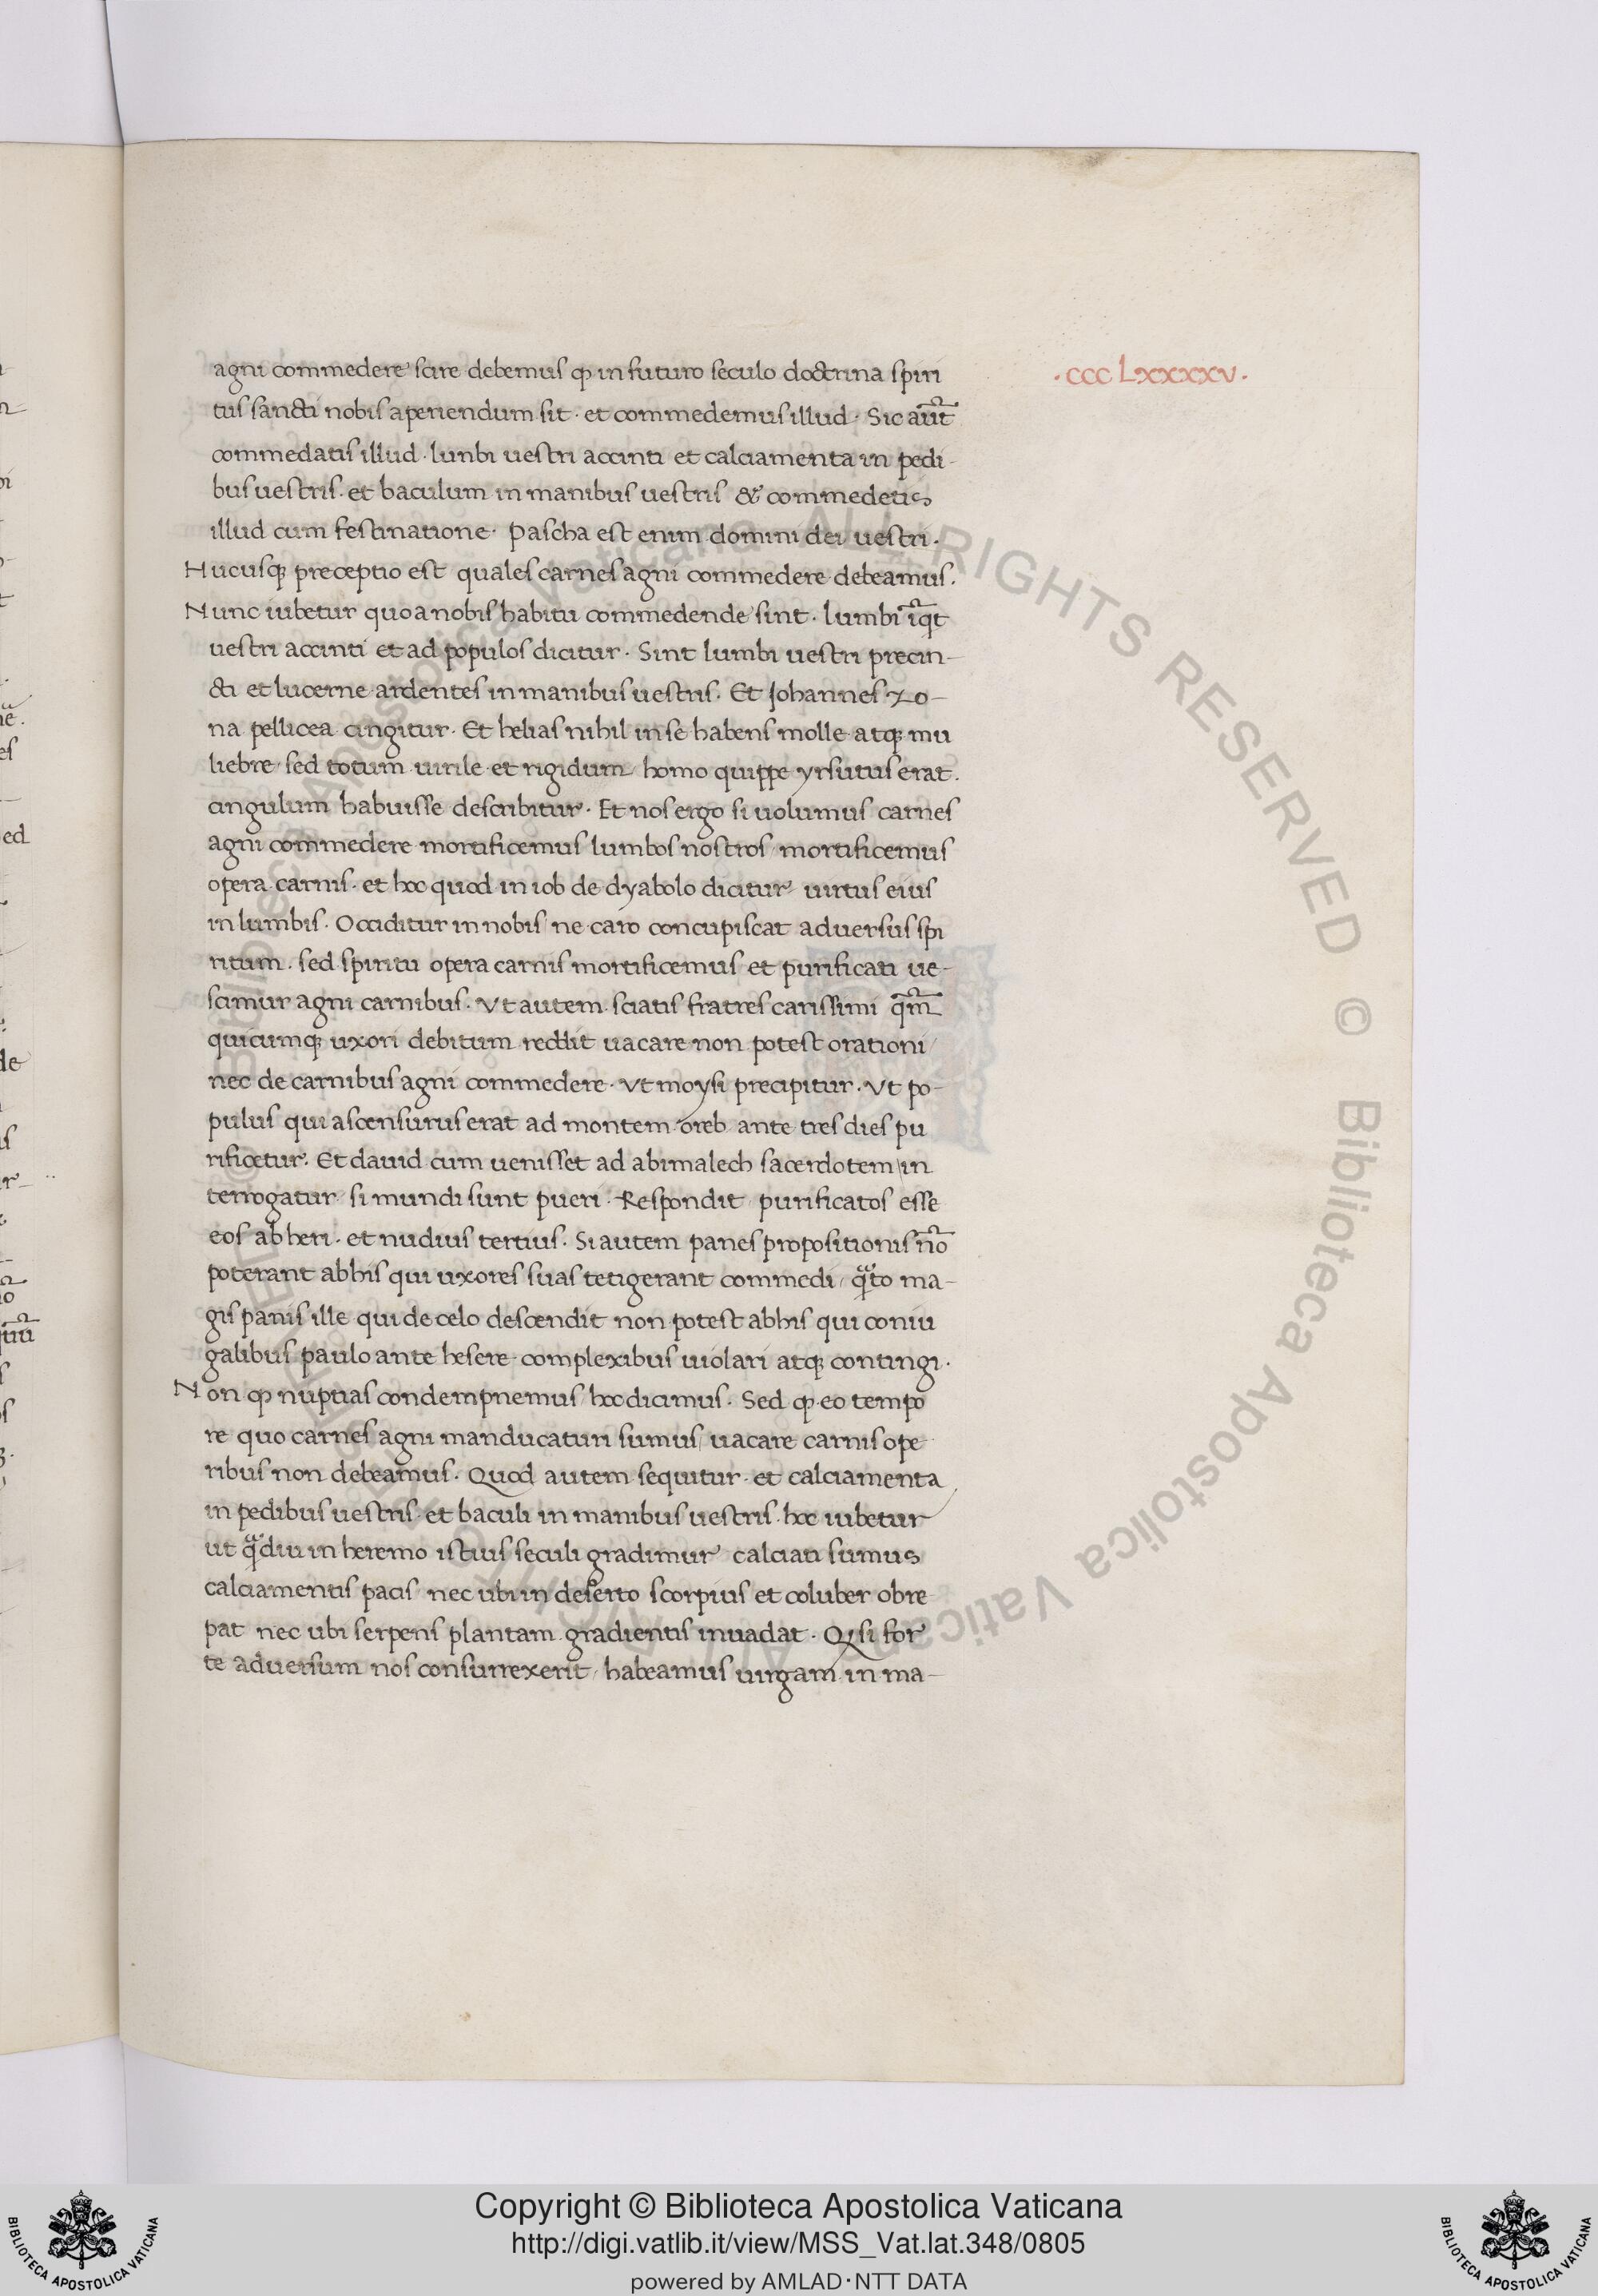 ·CCCLXXXXV·
agni commedere scire debemus ꝙ in futuro seculo doctrina spiri
tus sancti nobis aperiendum sit · et commedemus illud · Sic aūt
commedatis illud · lunbi uestri accinti et calciamenta in pedi-
bus uestris · et baculum in manibus uestris & commedetis
illud cum festinatione · Pascha est enim domini dei uestri ·
Hucusqꝫ preceptio est quales carnes agni commedere debeamus .
Nunc iubetur quo a nobis habitu commedende sint · lumbi īqt
uestri accinti et ad populos dicitur · Sint lumbi uestri precin-
cti et lucerne ardentes in manibus uestris · Et Johannes zo-
na pellicea cingitur · Et helias nihil in se habens molle atqꝫ mu
liebre · sed totum uirile et rigidum / homo quippe yrsutus erat .
cingulum habuisse describitur · Et nos ergo si uolumus carnes
agni commedere mortificemus lumbos nostros / mortificemus
opera carnis · et hoc quod in iob de dyabolo dicitur / uirtus eius
in lumbis · Occiditur in nobis / ne caro concupiscat aduersus spi
ritum · sed spiritu opera carnis mortificemus et purificati ue-
scimur agni carnibus · Vt autem sciatis fratres carissimi qm̄
quicumqꝫ uxori debitum reddit uacare non potest orationi /
nec de carnibus agni commedere · Vt moysi precipitur · Vt po-
pulus qui ascensurus erat ad montem oreb ante tres dies pu
rificetur · Et dauid cum uenisset ad abimalech sacerdotem / in
terrogatur / si mundi sunt pueri · Respondit / purificatos esse
eos ab heri · et nudius tertius · Si autem panes propositionis nō
poterant ab his qui uxores suas tetigerant commedi / qᵃ̄to ma-
gis panis ille qui de celo descendit non potest ab his qui coniu
galibus paulo ante hesere complexibus uiolari atqꝫ contingi ·
Non ꝙ nuptias condempnemus / hoc dicimus · Sed ꝙ eo tempo
re quo carnes agni manducaturi sumus / uacare carnis ope
ribus non debeamus · Quod autem sequitur · et calciamenta
in pedibus uestris · et baculi in manibus uestris · hoc iubetur
ut qᵃ̄diu in heremo istius seculi gradimur calciati sumus
calciamentis pacis nec ubi in deserto scorpius et coluber obre
pat nec ubi serpens plantam gradientis inuadat · Qꝫ si for
te aduersum nos consurrexerit / habeamus uirgam in ma-
Copyright © Biblioteca Apostolica Vaticana
http://digi.vatlib.it/view/MSS_Vat.lat.348/0805
powered by AMLAD·NTT DATA